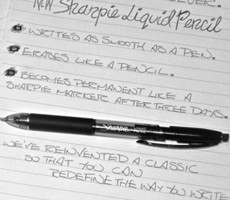 NEW Sharpie Liquid Pencil
WRITES AS SMOOTH AS A PEN.
ERASES LIKE A PENCIL.
BECOMES PERMANENT LIKE A
SHARPIE MARKER AFTER THREE DAYS.
Sharpie
WE'VE REINVENTED A CLASSIC
SO THAT YOU CAN
REDEFINE THE WAY YOU WRITE